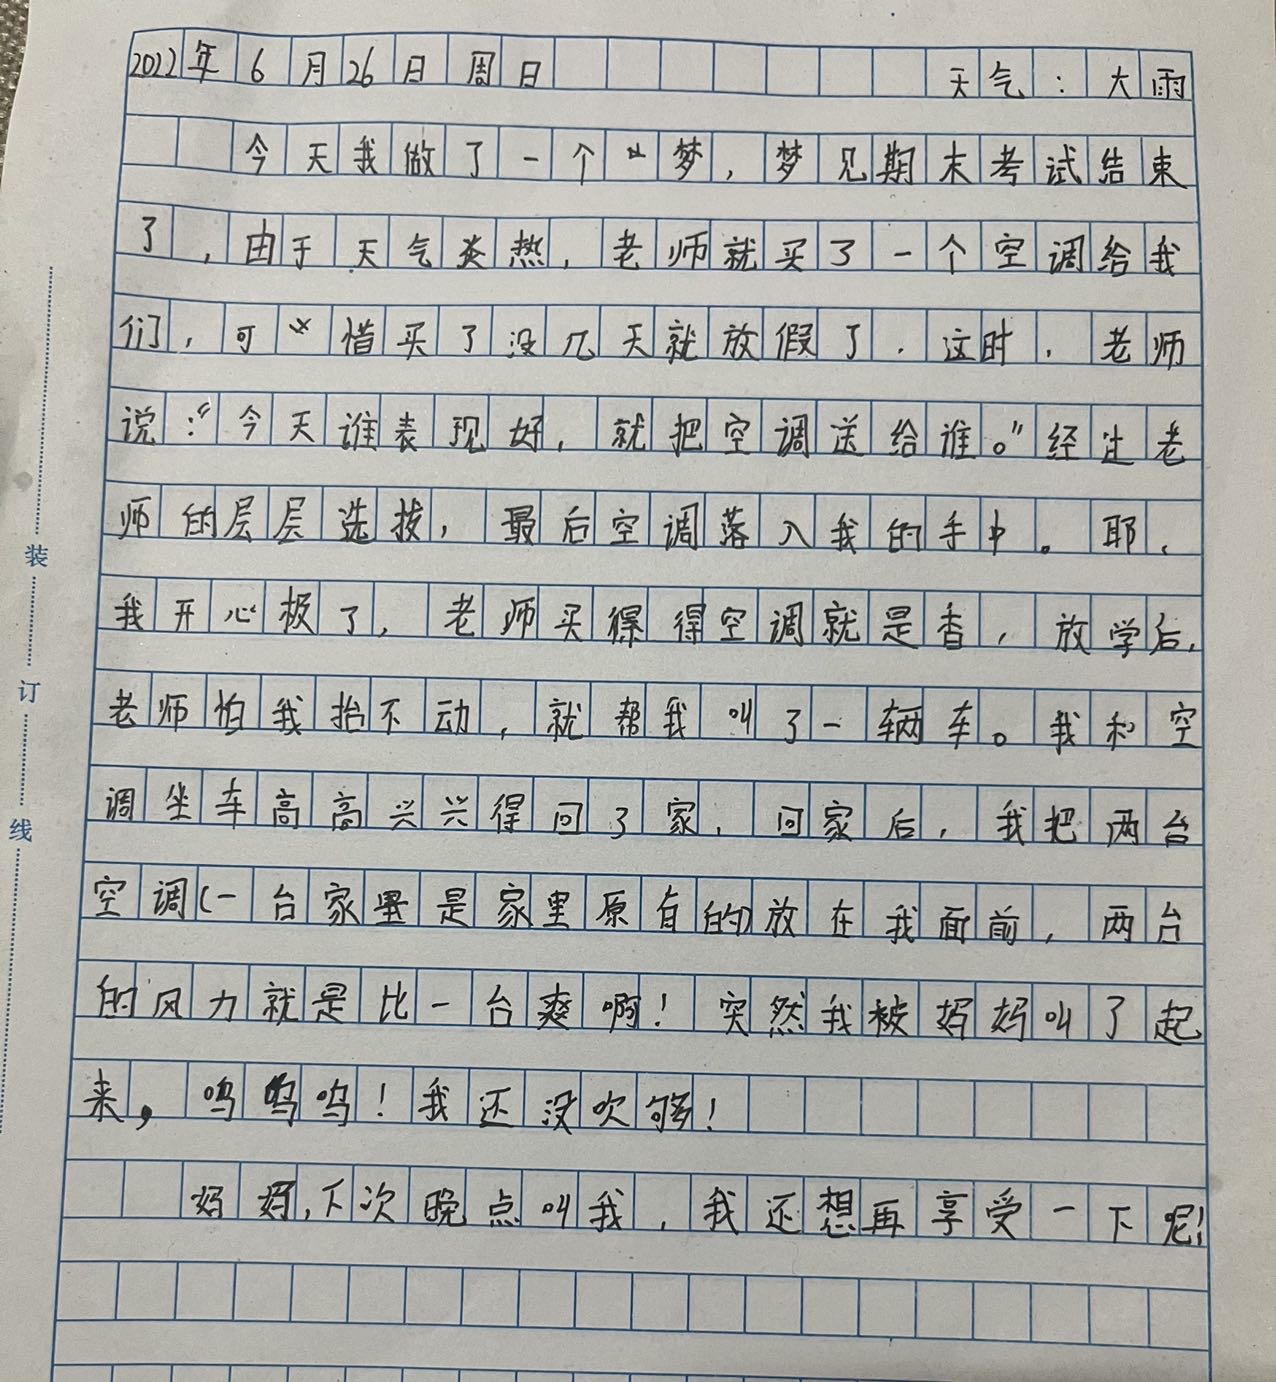 2022年6月26日周日 天气:大雨
今天我做了一个梦,梦见期末考试结束
了,由于天气炎热,老师就买了一个空调给我
们,可惜买了没几天就放假了.这时,老师
说:“今天谁表现好,就把空调送给谁。”经过老
师的层层选拔,最后空调落入我的手中。耶,
我开心极了,老师买得空调就是香,放学后,
老师怕我抬不动,就帮我叫了一辆车。我和空
调坐车高高兴兴得回了家,回家后,我把两台
空调(一台家里是家里原有的)放在我面前,两台
的风力就是比一台爽啊!突然我被妈妈叫了起
来,呜呜呜!我还没吹够!
妈妈,下次晚点叫我,我还想再享受一下呢!
装
订
线